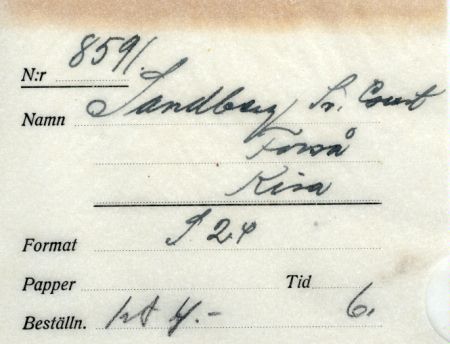 N:r 8591.
Namn Sandberg, Fr. Court
Forså
Kisa
Format S 24
Papper Tid
Beställn. 1st 4.- 6.